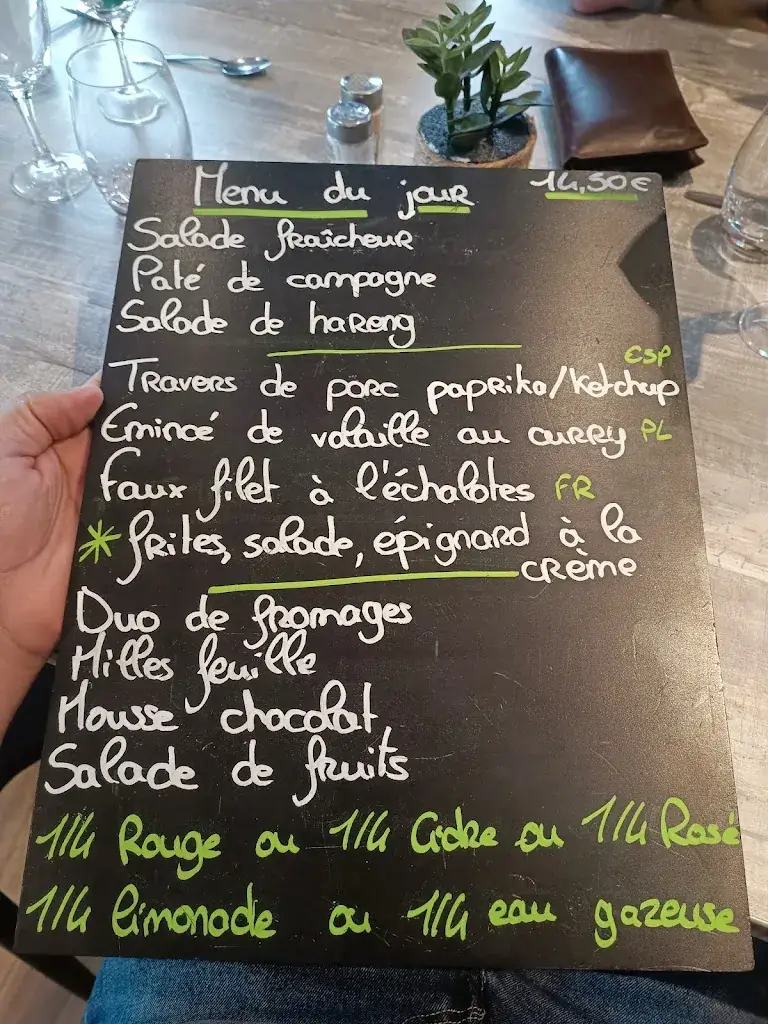 Menu du jour 14,50€
Salade fraîcheur
Paté de campagne
Salade de hareng
ESP
Travers de porc paprika/ketchup
Emincé de volaille au curry PL
Faux filet à l'échalotes FR
* frites, salade, épignard à la
crème
Duo de fromages
Milles feuille
Mousse chocolat
Salade de fruits
1/4 Rouge ou 1/4 Cidre ou 1/4 Rosé
1/4 limonade ou 1/4 eau gazeuse